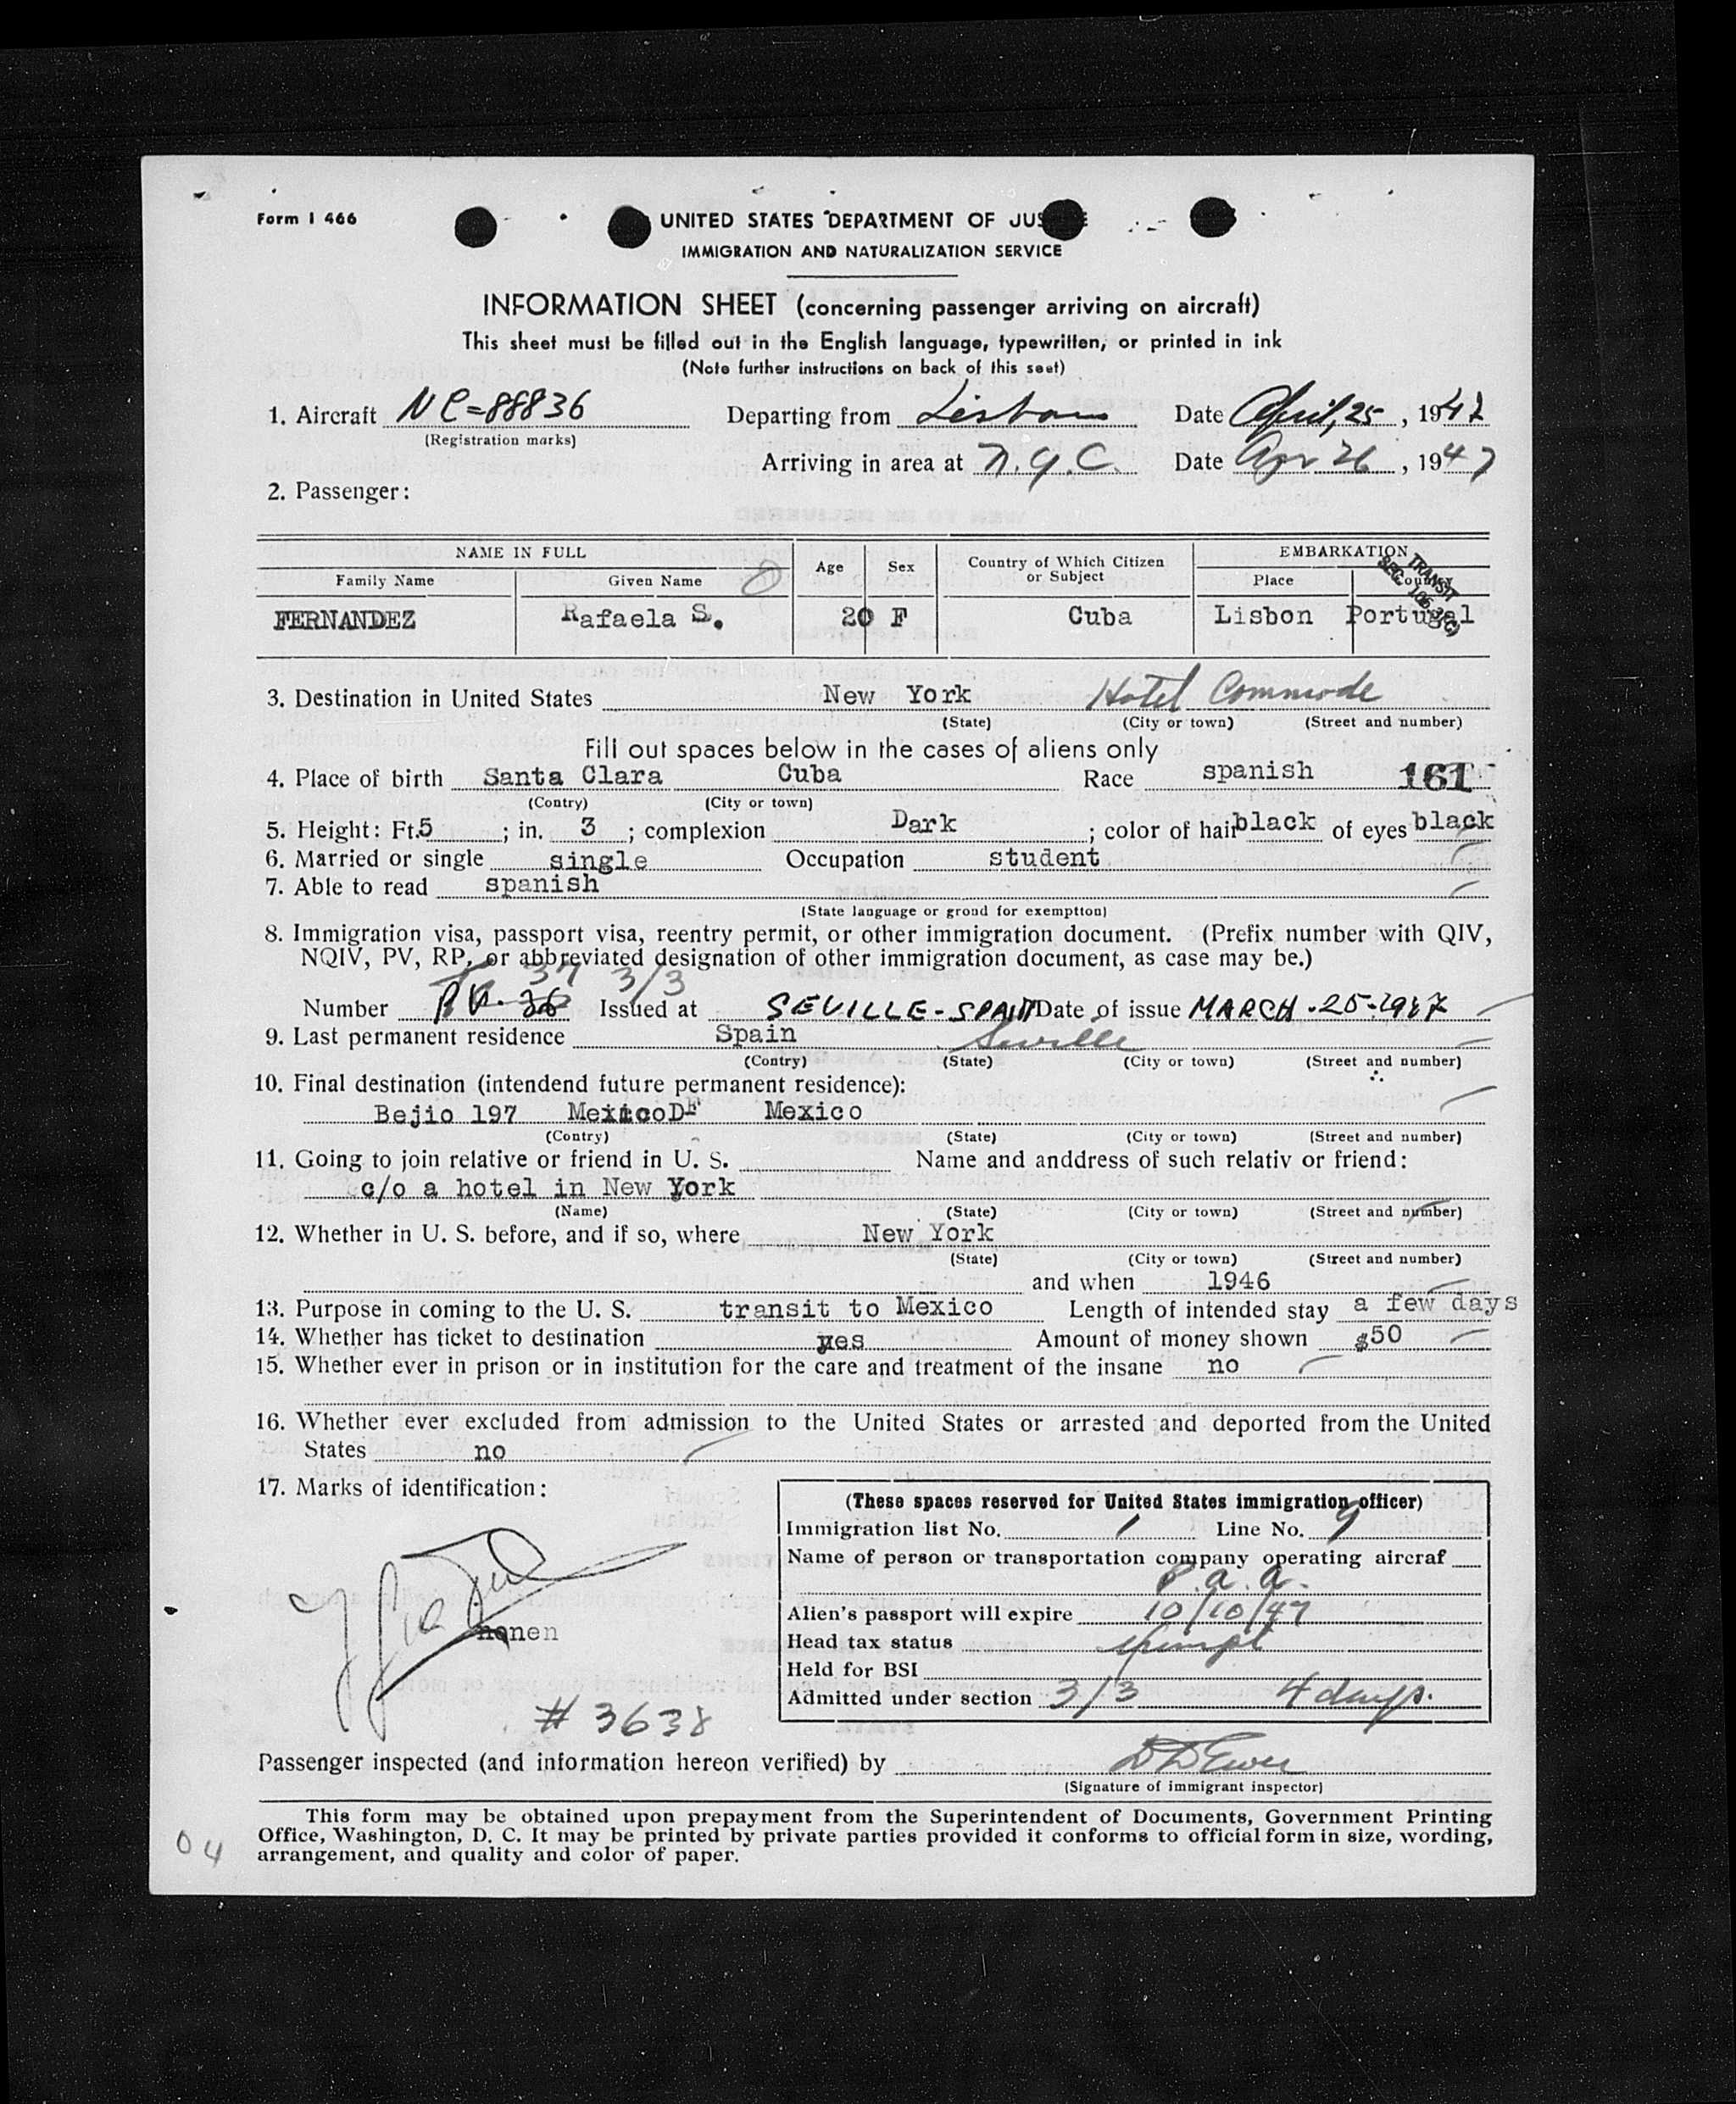 Form I 466
UNITED STATES DEPARTMENT OF JUS E
IMMIGRATION AND NATURALIZATION SERVICE
INFORMATION SHEET (concerning passenger arriving on aircraft)
This sheet must be filled out in the English language, typewritten, or printed in ink
(Note further instructions on back of this seet)
1. Aircraft NC=88836 Departing from Lisbon Date April, 25, 1947
(Registration marks)
Arriving in area at N.Y.C. Date Apr 26, 1947
2. Passenger:
NAME IN FULL Age Sex Country of Which Citizen or Subject EMBARKATION
Family Name Given Name Place Country
TRANSIT
SEC.
FERNANDEZ Rafaela S. 20 F Cuba Lisbon Portugal
3. Destination in United States New York Hotel Commode
(State) (City or town) (Street and number)
Fill out spaces below in the cases of aliens only
4. Place of birth Santa Clara Cuba Race spanish 161
(Contry) (City or town)
5. Height: Ft. 5 ; in. 3 ; complexion Dark ; color of hair black of eyes black
6. Married or single single Occupation student
7. Able to read spanish
(State language or groud for exemption)
8. Immigration visa, passport visa, reentry permit, or other immigration document. (Prefix number with QIV,
NQIV, PV, RP, or abbreviated designation of other immigration document, as case may be.)
37 3/3
Number PV-36 Issued at SEVILLE-SPAIN Date of issue MARCH-25-1947
9. Last permanent residence Spain Seville
(Contry) (State) (City or town) (Street and number)
10. Final destination (intendend future permanent residence):
Bejio 197 MexicoDF Mexico
(Contry) (State) (City or town) (Street and number)
11. Going to join relative or friend in U. S. Name and anddress of such relativ or friend:
c/o a hotel in New York
(Name) (State) (City or town) (Street and number)
12. Whether in U. S. before, and if so, where New York
(State) (City or town) (Street and number)
and when 1946
13. Purpose in coming to the U. S. transit to Mexico Length of intended stay a few days
14. Whether has ticket to destination yes Amount of money shown $50
15. Whether ever in prison or in institution for the care and treatment of the insane no
16. Whether ever excluded from admission to the United States or arrested and deported from the United
States no
17. Marks of identification:
nonen
# 3638
(These spaces reserved for United States immigration officer)
Immigration list No. 1 Line No. 9
Name of person or transportation company operating aircraf
P.a.a.
Alien's passport will expire 10/10/47
Head tax status exempt
Held for BSI
Admitted under section 3/3 4 days.
Passenger inspected (and information hereon verified) by
(Signature of immigrant inspector)
This form may be obtained upon prepayment from the Superintendent of Documents, Government Printing
Office, Washington, D. C. It may be printed by private parties provided it conforms to official form in size, wording,
arrangement, and quality and color of paper.
04